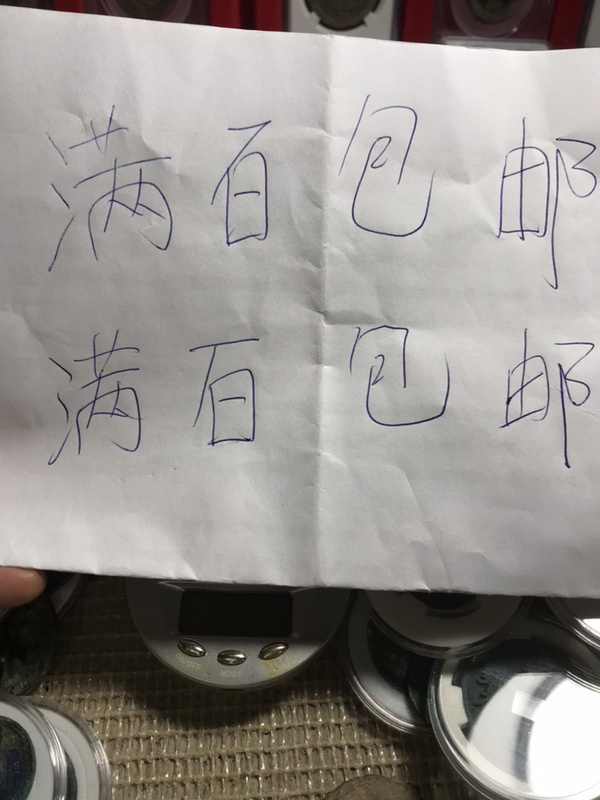 满百包邮
满百包邮
ON/OFF
MODE